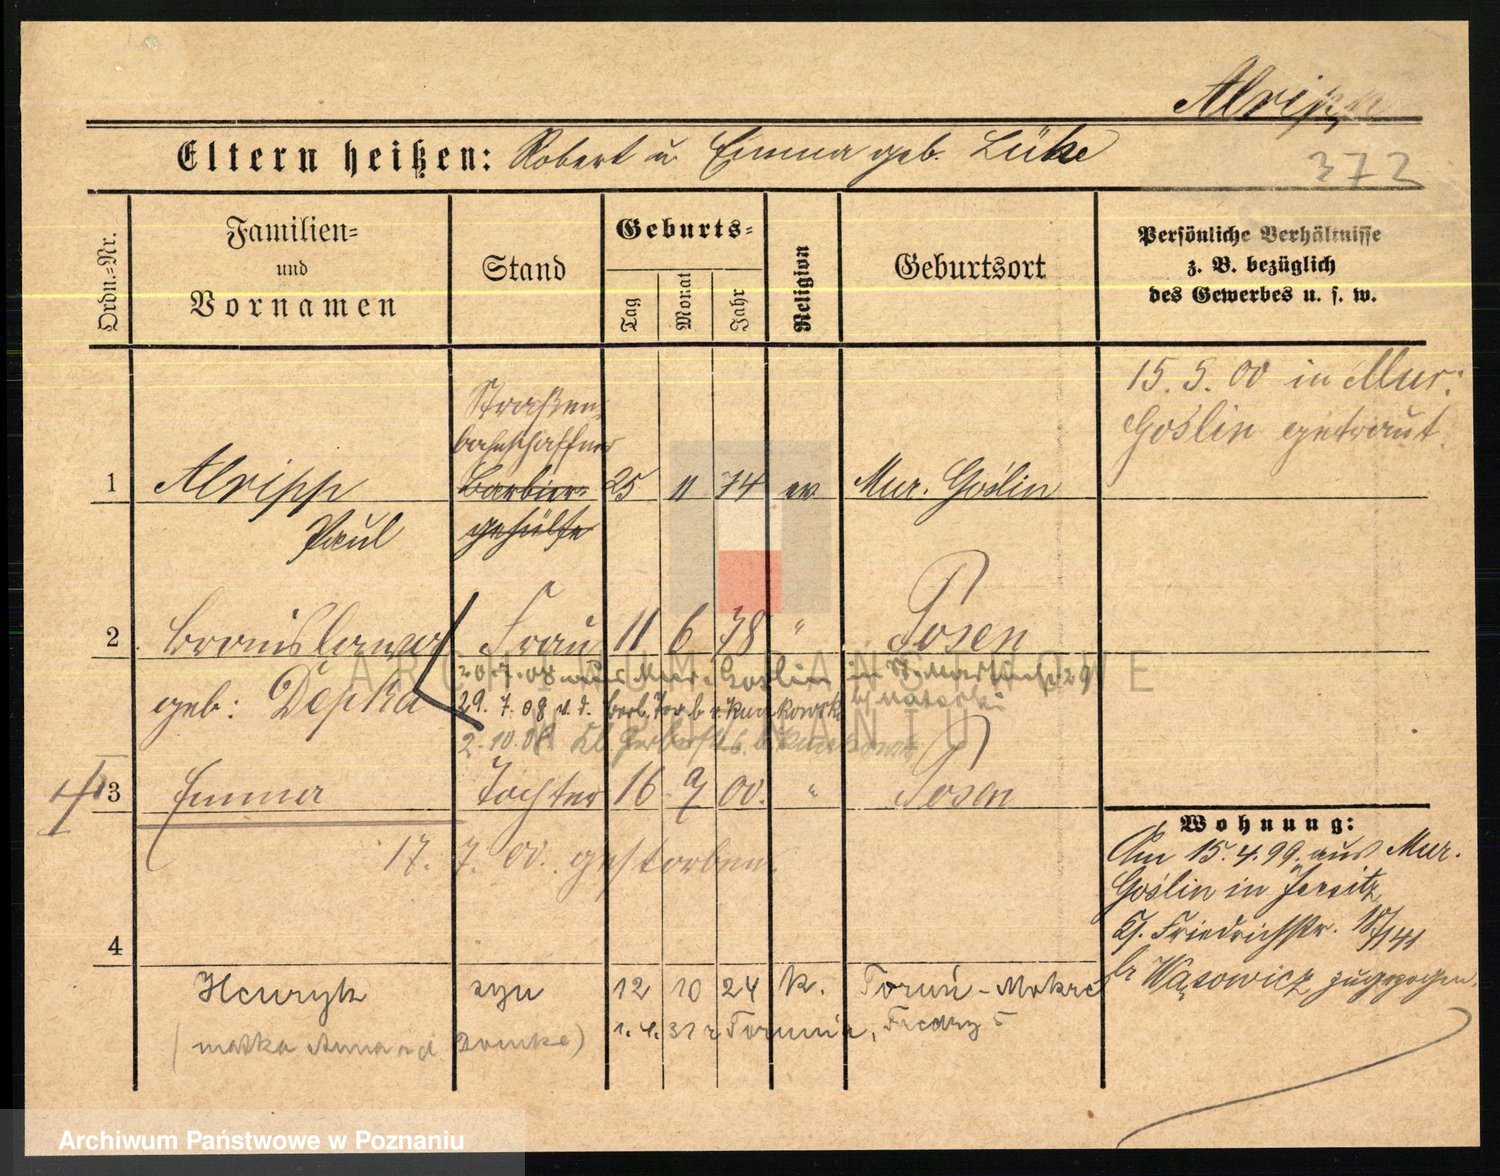 Alripp
Eltern heißen: Robert u Emma geb. Lüke
372
Ordn.-Nr.
Familien-
und
Vornamen
Stand
Geburts-
Tag
Monat
Jahr
Religion
Geburtsort
Persönliche Verhältnisse
z. B. bezüglich
des Gewerbes u. s. w.
15. 5. 00 in Mur.
Goslin getraut.
Straßen
bahnschaffner
1 Alripp Barbier- 25 11 74 ev Mur. Goslin
Paul gehülfe
2 Bronislawa Frau 11 6 78 " Posen
geb: Depka
20.7.08 aus Mur. Goslin in St. Martinstr 29
29. 7. 08 v. d.
2.10.08
3 Emma Tochter 16 00. " Posen
17. 7. 00. gestorben.
Wohnung:
Am 15.4.99. aus Mur.
Goslin in Jersitz
Kl. Friedrichstr.
b Wąsowicz zugezogen.
4
Henryk syn 12 10 24 k. Toruń-Mokre
(matka Anna zd. Domke) 1.4.31 z Torunia, Fredry 5
ARCHIWUM PAŃSTWOWE
W POZNANIU
Archiwum Państwowe w Poznaniu